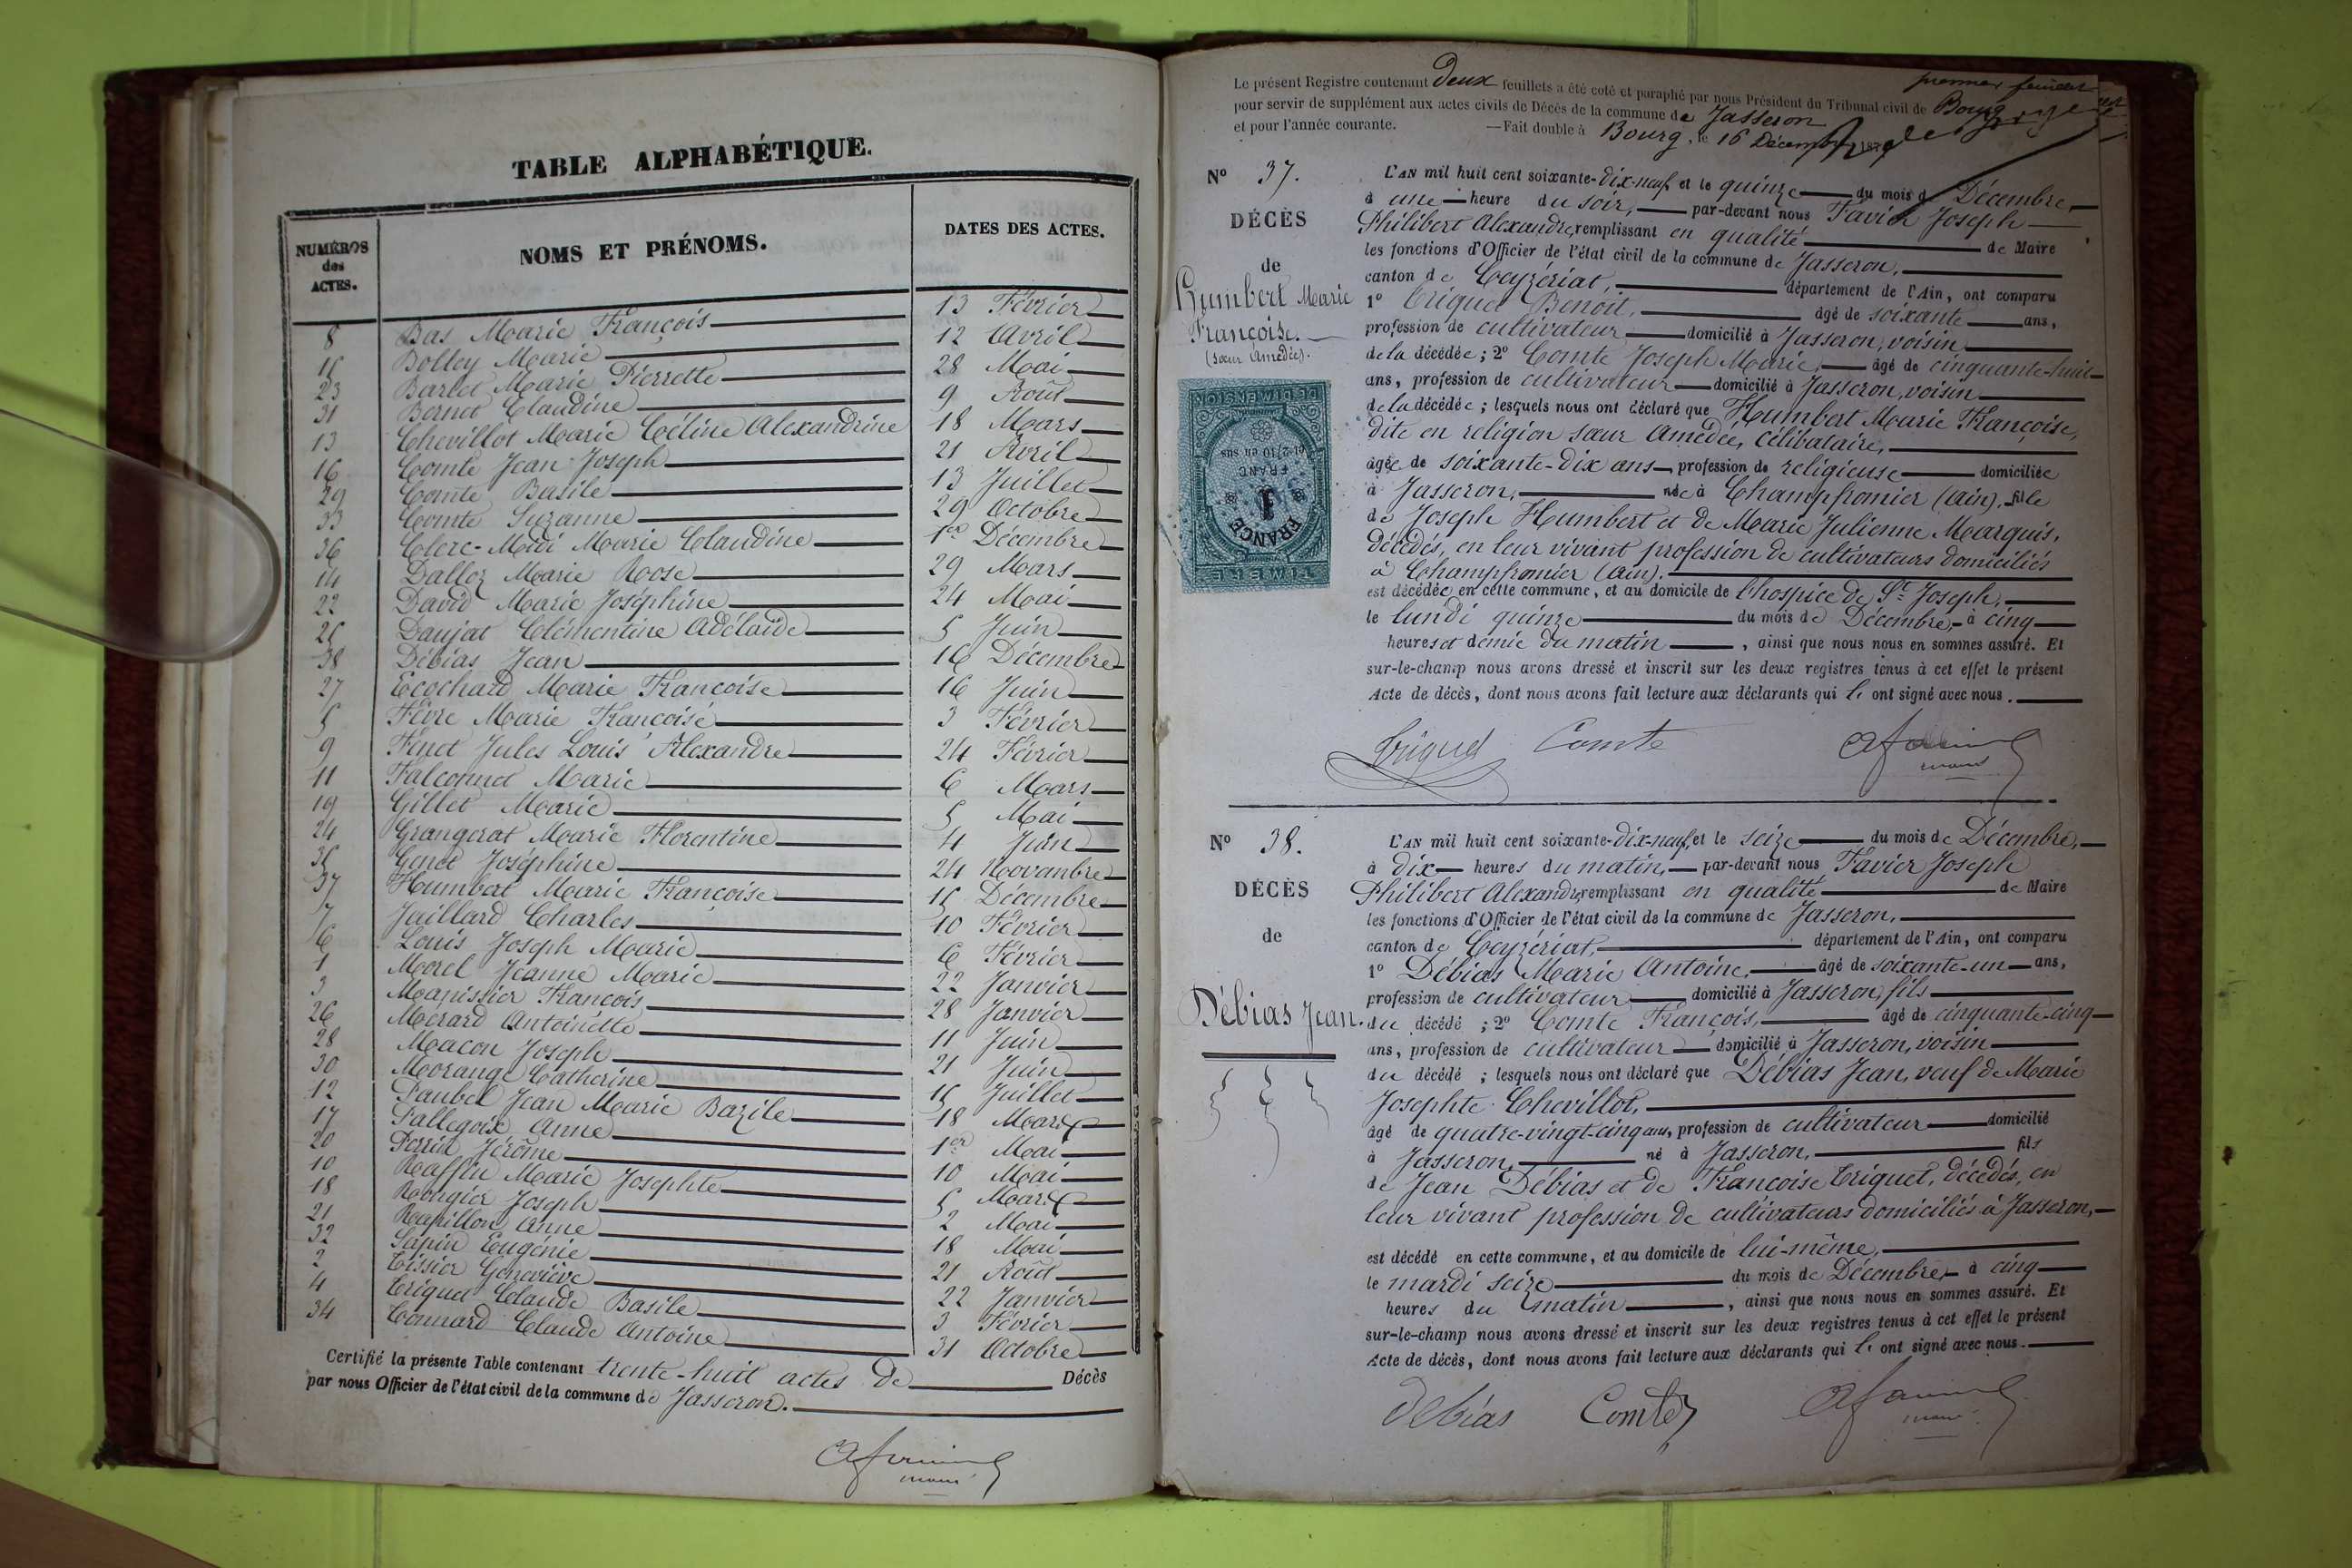 TABLE ALPHABÉTIQUE.
NUMÉROS des ACTES. NOMS ET PRÉNOMS. DATES DES ACTES.
8 Bas Marie François 13 Février
15 Bolley Marie 12 Avril
23 Barlet Marie Pierrette 28 Mai
31 Bernot Claudine 9 Août
13 Chevillot Marie Céline Alexandrine 18 Mars
16 Comte Jean Joseph 21 Avril
29 Comte Basile 13 Juillet
33 Comte Suzanne 29 Octobre
36 Clerc-Midi Marie Claudine 1er Décembre
14 Dalloz Marie Roose 29 Mars
22 David Marie Joséphine 24 Mai
25 Daujat Clémentine Adélaïde 5 Juin
38 Débias Jean 16 Décembre
27 Ecochard Marie Françoise 16 Juin
5 Fèvre Marie Françoise 3 Février
9 Fenot Jules Louis Alexandre 24 Février
11 Falconnet Marie 6 Mars
19 Gillet Marie 5 Mai
24 Grangerat Marie Florentine 4 Juin
35 Genet Joséphine 24 Novembre
37 Humbert Marie Françoise 15 Décembre
7 Jaillard Charles 10 Février
6 Louis Joseph Marie 6 Février
1 Morel Jeanne Marie 22 Janvier
3 Manissier François 28 Janvier
26 Merard Antoinette 11 Juin
28 Macon Joseph 21 Juin
30 Morange Catherine 15 Juillet
12 Paubel Jean Marie Bazile 18 Mars
17 Pallegoix Anne 1er Mai
20 Perrin Jérôme 10 Mai
10 Raffin Marie Josephte 5 Mars
18 Rongier Joseph 2 Mai
21 Rapillon Anne 18 Mai
32 Sapin Eugénie 21 Août
2 Tissier Geneviève 22 Janvier
4 Triquet Claude Basile 3 Février
34 Tonnard Claude Antoine 31 Octobre
Certifié la présente Table contenant trente-huit actes de Décès
par nous Officier de l'état civil de la commune de Jasseron.
maire
premier feuillet
Le présent Registre contenant deux feuillets a été coté et paraphé par nous Président du Tribunal civil de Bourg
pour servir de supplément aux actes civils de Décès de la commune de Jasseron
et pour l'année courante. —Fait double à Bourg, le 16 Décembre 187
No 37.
DÉCÈS
de
Humbert Marie
Françoise.
(sœur Amédée).
DE DIMENSION
et 2/10 en sus
FRANC
1
FRANCE
TIMBRE
L'AN mil huit cent soixante-dix-neuf et le quinze du mois d Décembre,
à une heure du soir, par-devant nous Favier Joseph
Philibert Alexandre, remplissant en qualité de Maire
les fonctions d'Officier de l'état civil de la commune de Jasseron,
canton de Ceyzériat, département de l'Ain, ont comparu
1o Triquet Benoit, âgé de soixante ans,
profession de cultivateur domicilié à Jasseron, voisin
de la décédée ; 2o Comte Joseph Marie, âgé de cinquante-huit
ans, profession de cultivateur domicilié à Jasseron, voisin
de la décédée ; lesquels nous ont déclaré que Humbert Marie Françoise,
dite en religion sœur Amédée, célibataire,
âgée de soixante-dix ans, profession de religieuse domiciliée
à Jasseron, née à Champfromier (Ain), fille
de Joseph Humbert et de Marie Julienne Marquis,
décédés, en leur vivant profession de cultivateurs domiciliés
à Champfromier (Ain).
est décédée en cette commune, et au domicile de l'hospice de St Joseph,
le lundi quinze du mois de Décembre, à cinq
heures et demie du matin, ainsi que nous nous en sommes assuré. Et
sur-le-champ nous avons dressé et inscrit sur les deux registres tenus à cet effet le présent
Acte de décès, dont nous avons fait lecture aux déclarants qui l' ont signé avec nous.
Triquet Comte
maire
No 38.
DÉCÈS
de
Débias Jean.
L'AN mil huit cent soixante-dix-neuf, et le seize du mois de Décembre,
à dix heures du matin, par-devant nous Favier Joseph
Philibert Alexandre, remplissant en qualité de Maire
les fonctions d'Officier de l'état civil de la commune de Jasseron,
canton de Ceyzériat, département de l'Ain, ont comparu
1o Débias Marie Antoine, âgé de soixante-un ans,
profession de cultivateur domicilié à Jasseron, fils
du décédé ; 2o Comte François, âgé de cinquante-cinq
ans, profession de cultivateur domicilié à Jasseron, voisin
du décédé ; lesquels nous ont déclaré que Débias Jean, veuf de Marie
Josephte Chevillot,
âgé de quatre-vingt-cinq ans, profession de cultivateur domicilié
à Jasseron, né à Jasseron, fils
de Jean Débias et de Françoise Triquet, décédés, en
leur vivant profession de cultivateurs domiciliés à Jasseron,
est décédé en cette commune, et au domicile de lui-même,
le mardi seize du mois de Décembre, à cinq
heures du matin, ainsi que nous nous en sommes assuré. Et
sur-le-champ nous avons dressé et inscrit sur les deux registres tenus à cet effet le présent
Acte de décès, dont nous avons fait lecture aux déclarants qui l' ont signé avec nous.
debias Comte
maire